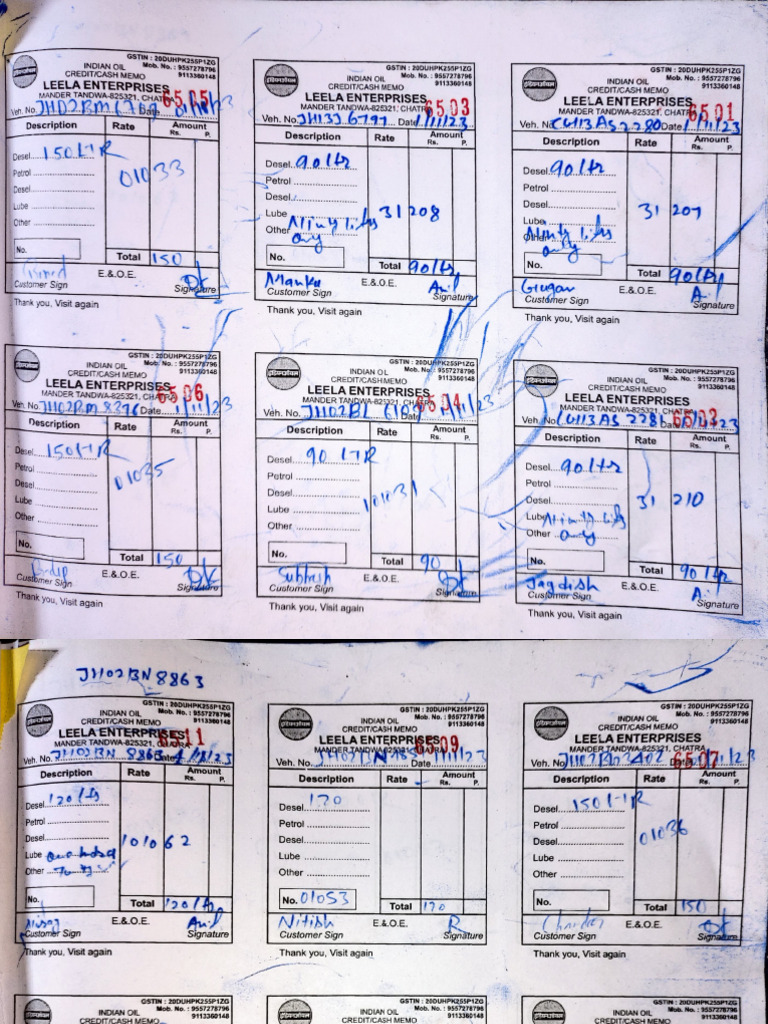 GSTIN : 20DUHPK255P1ZG
INDIAN OIL Mob. No. : 9557278796
CREDIT/CASH MEMO 9113360148
LEELA ENTERPRISES
MANDER TANDWA-825321, CHATRA
6505
Veh. No. Date
Description Rate Amount
Rs. P.
Desel 150 LTR
01033
Petrol
Desel
Lube
Other
No.
Total 150
E.&.O.E.
Customer Sign Signature
Thank you, Visit again
GSTIN : 20DUHPK255P1ZG
INDIAN OIL Mob. No. : 9557278796
CREDIT/CASH MEMO 9113360148
LEELA ENTERPRISES
MANDER TANDWA-825321, CHATRA
6503
Veh. No. JH13J 6797 Date 1/11/23
Description Rate Amount
Rs. P.
Desel 90 ltr
Petrol
Desel
Lube 31 208
Other Ninty only
No.
Total 90 ltr
Manku E.&.O.E. Anil
Customer Sign Signature
Thank you, Visit again
GSTIN : 20DUHPK255P1ZG
INDIAN OIL Mob. No. : 9557278796
CREDIT/CASH MEMO 9113360148
LEELA ENTERPRISES
MANDER TANDWA-825321, CHATRA
6501
Veh. No. CG13AS 2280 Date 1/11/23
Description Rate Amount
Rs. P.
Desel 90 ltr
Petrol
Desel
Lube 31 207
Other Ninty only
No.
Total 90 ltr
Gugan E.&.O.E. Anil
Customer Sign Signature
Thank you, Visit again
GSTIN : 20DUHPK255P1ZG
INDIAN OIL Mob. No. : 9557278796
CREDIT/CASH MEMO 9113360148
LEELA ENTERPRISES
MANDER TANDWA-825321, CHATRA
6506
Veh. No. JH02BM 8376 Date 1/11/23
Description Rate Amount
Rs. P.
Desel 150 LTR
01035
Petrol
Desel
Lube
Other
No.
Total 150
E.&.O.E.
Customer Sign Signature
Thank you, Visit again
GSTIN : 20DUHPK255P1ZG
INDIAN OIL Mob. No. : 9557278796
CREDIT/CASH MEMO 9113360148
LEELA ENTERPRISES
MANDER TANDWA-825321, CHATRA
6504
Veh. No. Date 1/11/23
Description Rate Amount
Rs. P.
Desel 90 LTR
Petrol
Desel 101031
Lube
Other
No.
Total 90
Subhash E.&.O.E.
Customer Sign Signature
Thank you, Visit again
GSTIN : 20DUHPK255P1ZG
INDIAN OIL Mob. No. : 9557278796
CREDIT/CASH MEMO 9113360148
LEELA ENTERPRISES
MANDER TANDWA-825321, CHATRA
Veh. No. CG13AS 2281 Date
Description Rate Amount
Rs. P.
Desel 90 ltr
Petrol
Desel 31 210
Lube Ninty
Other only
No.
Total 90 ltr
Jagdish E.&.O.E.
Customer Sign Signature
Thank you, Visit again
JH02BN 8863
GSTIN : 20DUHPK255P1ZG
INDIAN OIL Mob. No. : 9557278796
CREDIT/CASH MEMO 9113360148
LEELA ENTERPRISES
MANDER TANDWA-825321, CHATRA
Veh. No. JH02BN 8863 Date
Description Rate Amount
Rs. P.
Desel 120 ltr
Petrol
Desel 101062
Lube
Other
No.
Total 120 ltr
E.&.O.E. Anil
Customer Sign Signature
Thank you, Visit again
GSTIN : 20DUHPK255P1ZG
INDIAN OIL Mob. No. : 9557278796
CREDIT/CASH MEMO 9113360148
LEELA ENTERPRISES
6509
Veh. No. Date 1/11/23
Description Rate Amount
Rs. P.
Desel 170
Petrol
Desel
Lube
Other
No. 01053
Total 170
Nitish E.&.O.E. R
Customer Sign Signature
Thank you, Visit again
GSTIN : 20DUHPK255P1ZG
INDIAN OIL Mob. No. : 9557278796
CREDIT/CASH MEMO 9113360148
LEELA ENTERPRISES
MANDER TANDWA-825321, CHATRA
6507
Veh. No. Date
Description Rate Amount
Rs. P.
Desel 150 LTR
Petrol 01036
Desel
Lube
Other
No.
Total 150
E.&.O.E.
Customer Sign Signature
Thank you, Visit again
GSTIN : 20DUHPK255P1ZG
INDIAN OIL Mob. No. : 9557278796
CREDIT/CASH MEMO 9113360148
GSTIN : 20DUHPK255P1ZG
INDIAN OIL Mob. No. : 9557278796
CREDIT/CASH MEMO 9113360148
GSTIN : 20DUHPK255P1ZG
INDIAN OIL Mob. No. : 9557278796
CREDIT/CASH MEMO 9113360148